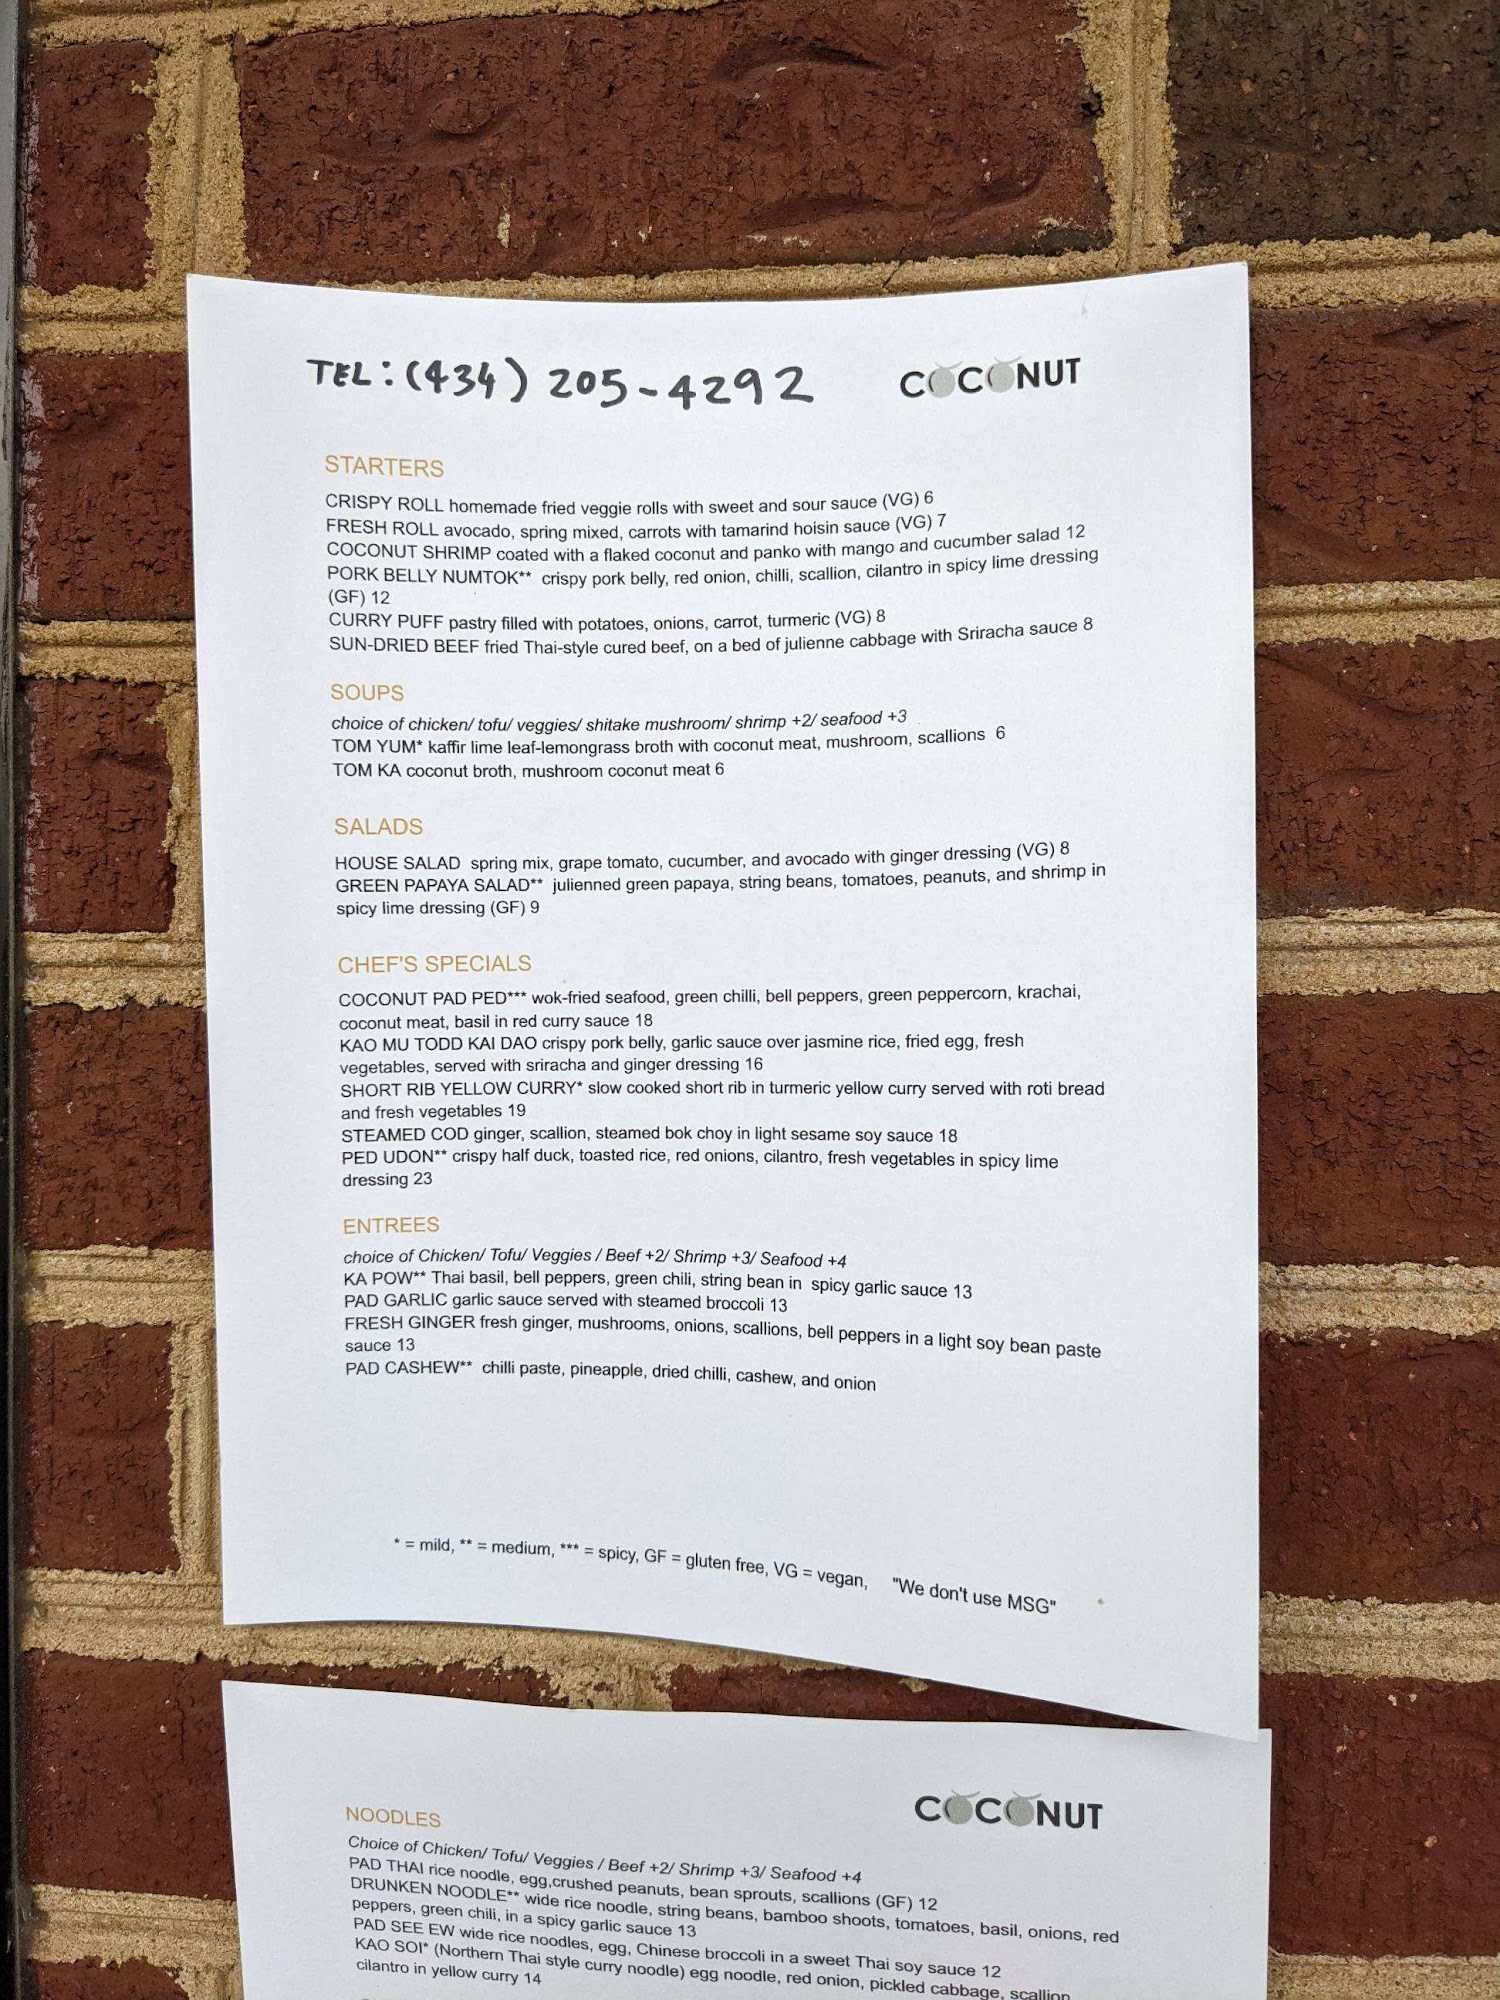 TEL: (434) 205-4292
COCONUT
STARTERS
CRISPY ROLL homemade fried veggie rolls with sweet and sour sauce (VG) 6
FRESH ROLL avocado, spring mixed, carrots with tamarind hoisin sauce (VG) 7
COCONUT SHRIMP coated with a flaked coconut and panko with mango and cucumber salad 12
PORK BELLY NUMTOK** crispy pork belly, red onion, chilli, scallion, cilantro in spicy lime dressing
(GF) 12
CURRY PUFF pastry filled with potatoes, onions, carrot, turmeric (VG) 8
SUN-DRIED BEEF fried Thai-style cured beef, on a bed of julienne cabbage with Sriracha sauce 8
SOUPS
choice of chicken/ tofu/ veggies/ shitake mushroom/ shrimp +2/ seafood +3
TOM YUM* kaffir lime leaf-lemongrass broth with coconut meat, mushroom, scallions 6
TOM KA coconut broth, mushroom coconut meat 6
SALADS
HOUSE SALAD spring mix, grape tomato, cucumber, and avocado with ginger dressing (VG) 8
GREEN PAPAYA SALAD** julienned green papaya, string beans, tomatoes, peanuts, and shrimp in
spicy lime dressing (GF) 9
CHEF'S SPECIALS
COCONUT PAD PED*** wok-fried seafood, green chilli, bell peppers, green peppercorn, krachai,
coconut meat, basil in red curry sauce 18
KAO MU TODD KAI DAO crispy pork belly, garlic sauce over jasmine rice, fried egg, fresh
vegetables, served with sriracha and ginger dressing 16
SHORT RIB YELLOW CURRY* slow cooked short rib in turmeric yellow curry served with roti bread
and fresh vegetables 19
STEAMED COD ginger, scallion, steamed bok choy in light sesame soy sauce 18
PED UDON** crispy half duck, toasted rice, red onions, cilantro, fresh vegetables in spicy lime
dressing 23
ENTREES
choice of Chicken/ Tofu/ Veggies / Beef +2/ Shrimp +3/ Seafood +4
KA POW** Thai basil, bell peppers, green chili, string bean in spicy garlic sauce 13
PAD GARLIC garlic sauce served with steamed broccoli 13
FRESH GINGER fresh ginger, mushrooms, onions, scallions, bell peppers in a light soy bean paste
sauce 13
PAD CASHEW** chilli paste, pineapple, dried chilli, cashew, and onion
* = mild, ** = medium, *** = spicy, GF = gluten free, VG = vegan, "We don't use MSG"
COCONUT
NOODLES
Choice of Chicken/ Tofu/ Veggies / Beef +2/ Shrimp +3/ Seafood +4
PAD THAI rice noodle, egg,crushed peanuts, bean sprouts, scallions (GF) 12
DRUNKEN NOODLE** wide rice noodle, string beans, bamboo shoots, tomatoes, basil, onions, red
peppers, green chili, in a spicy garlic sauce 13
PAD SEE EW wide rice noodles, egg, Chinese broccoli in a sweet Thai soy sauce 12
KAO SOI* (Northern Thai style curry noodle) egg noodle, red onion, pickled cabbage, scallion
cilantro in yellow curry 14